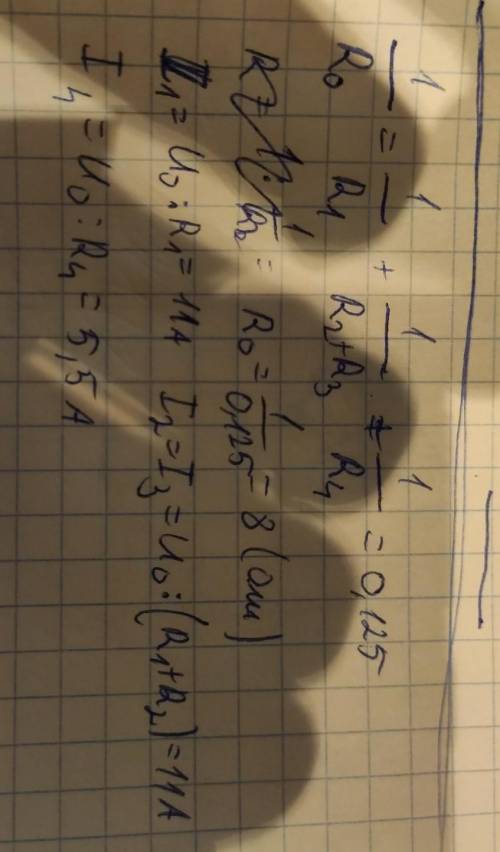 1/R₀ = 1/R₁ + 1/(R₂+R₃) + 1/R₄ = 0,125
R₀ = 1/0,125 = 8 (ом)
I₁ = U₀ : R₁ = 11А I₂ = I₃ = U₀ : (R₁+R₂) = 11А
I₄ = U₀ : R₄ = 5,5 А